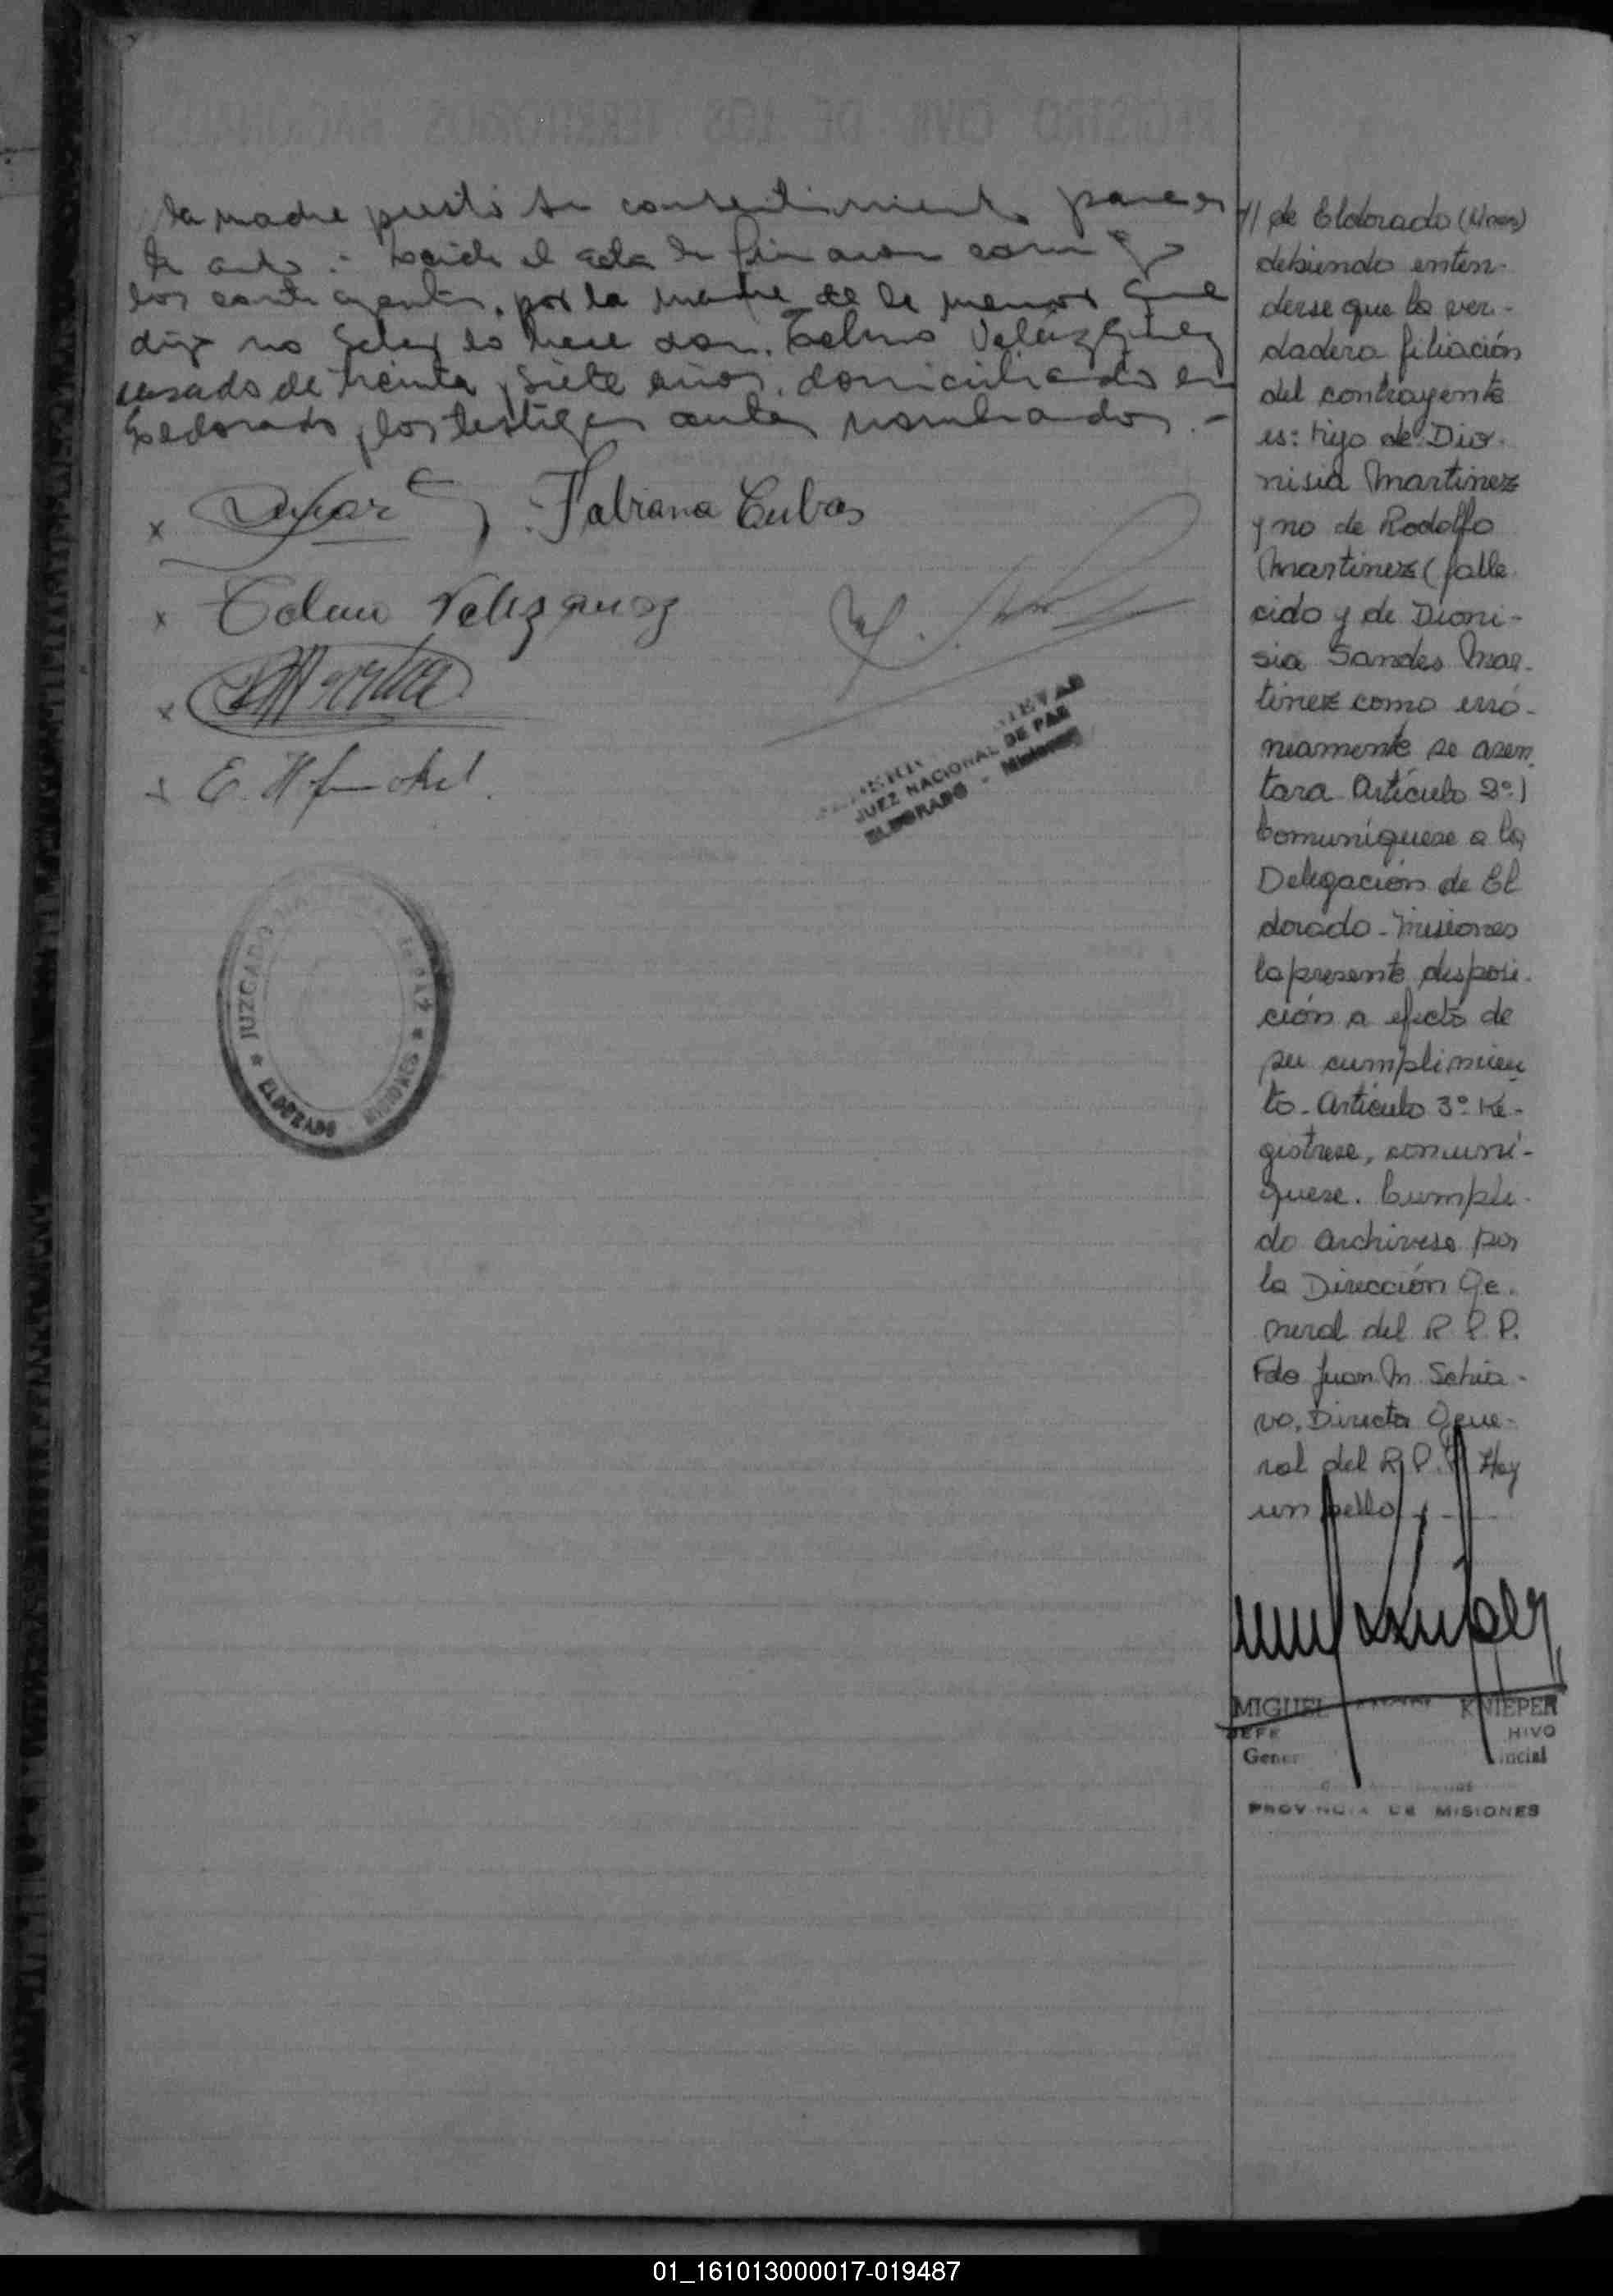 la madre prestó su consentimiento para es
te acto.- Leída el acta la firmaron conmigo
los contrayentes, por la madre de la menor que
dijo no saber lo hace don Telmo Velázquez
casado de treinta y siete años, domiciliado en
Eldorado y los testigos antes nombrados.-
x Fabiana Cubas
x Telmo Velazquez
x
x E. H
JUEZ NACIONAL DE PAZ
ELDORADO - Misiones
JUZGADO
DE PAZ
* ELDORADO MISIONES *
// de Eldorado (Mnes)
debiendo enten-
derse que la ver-
dadera filiación
del contrayente
es: hijo de Dio-
nisia Martinez
y no de Rodolfo
Martinez (falle
cido y de Dioni-
sia Sandes Mar-
tinez como erró-
neamente se asen
tara Artículo 2º)
Comuníquese a la
Delegación de El
dorado - Misiones
la presente disposi-
ción a efecto de
su cumplimien
to - Artículo 3º Re-
gistrese, comuní-
quese. Cumpli-
do archivese por
la Dirección Ge-
neral del R.P.P.
Fdo Juan M. Schia-
vo, Director Gene-
ral del R.P.P. Hay
un sello
MIGUEL KNIEPER
JEFE HIVO
Gener incial
PROVINCIA DE MISIONES
01_161013000017-019487